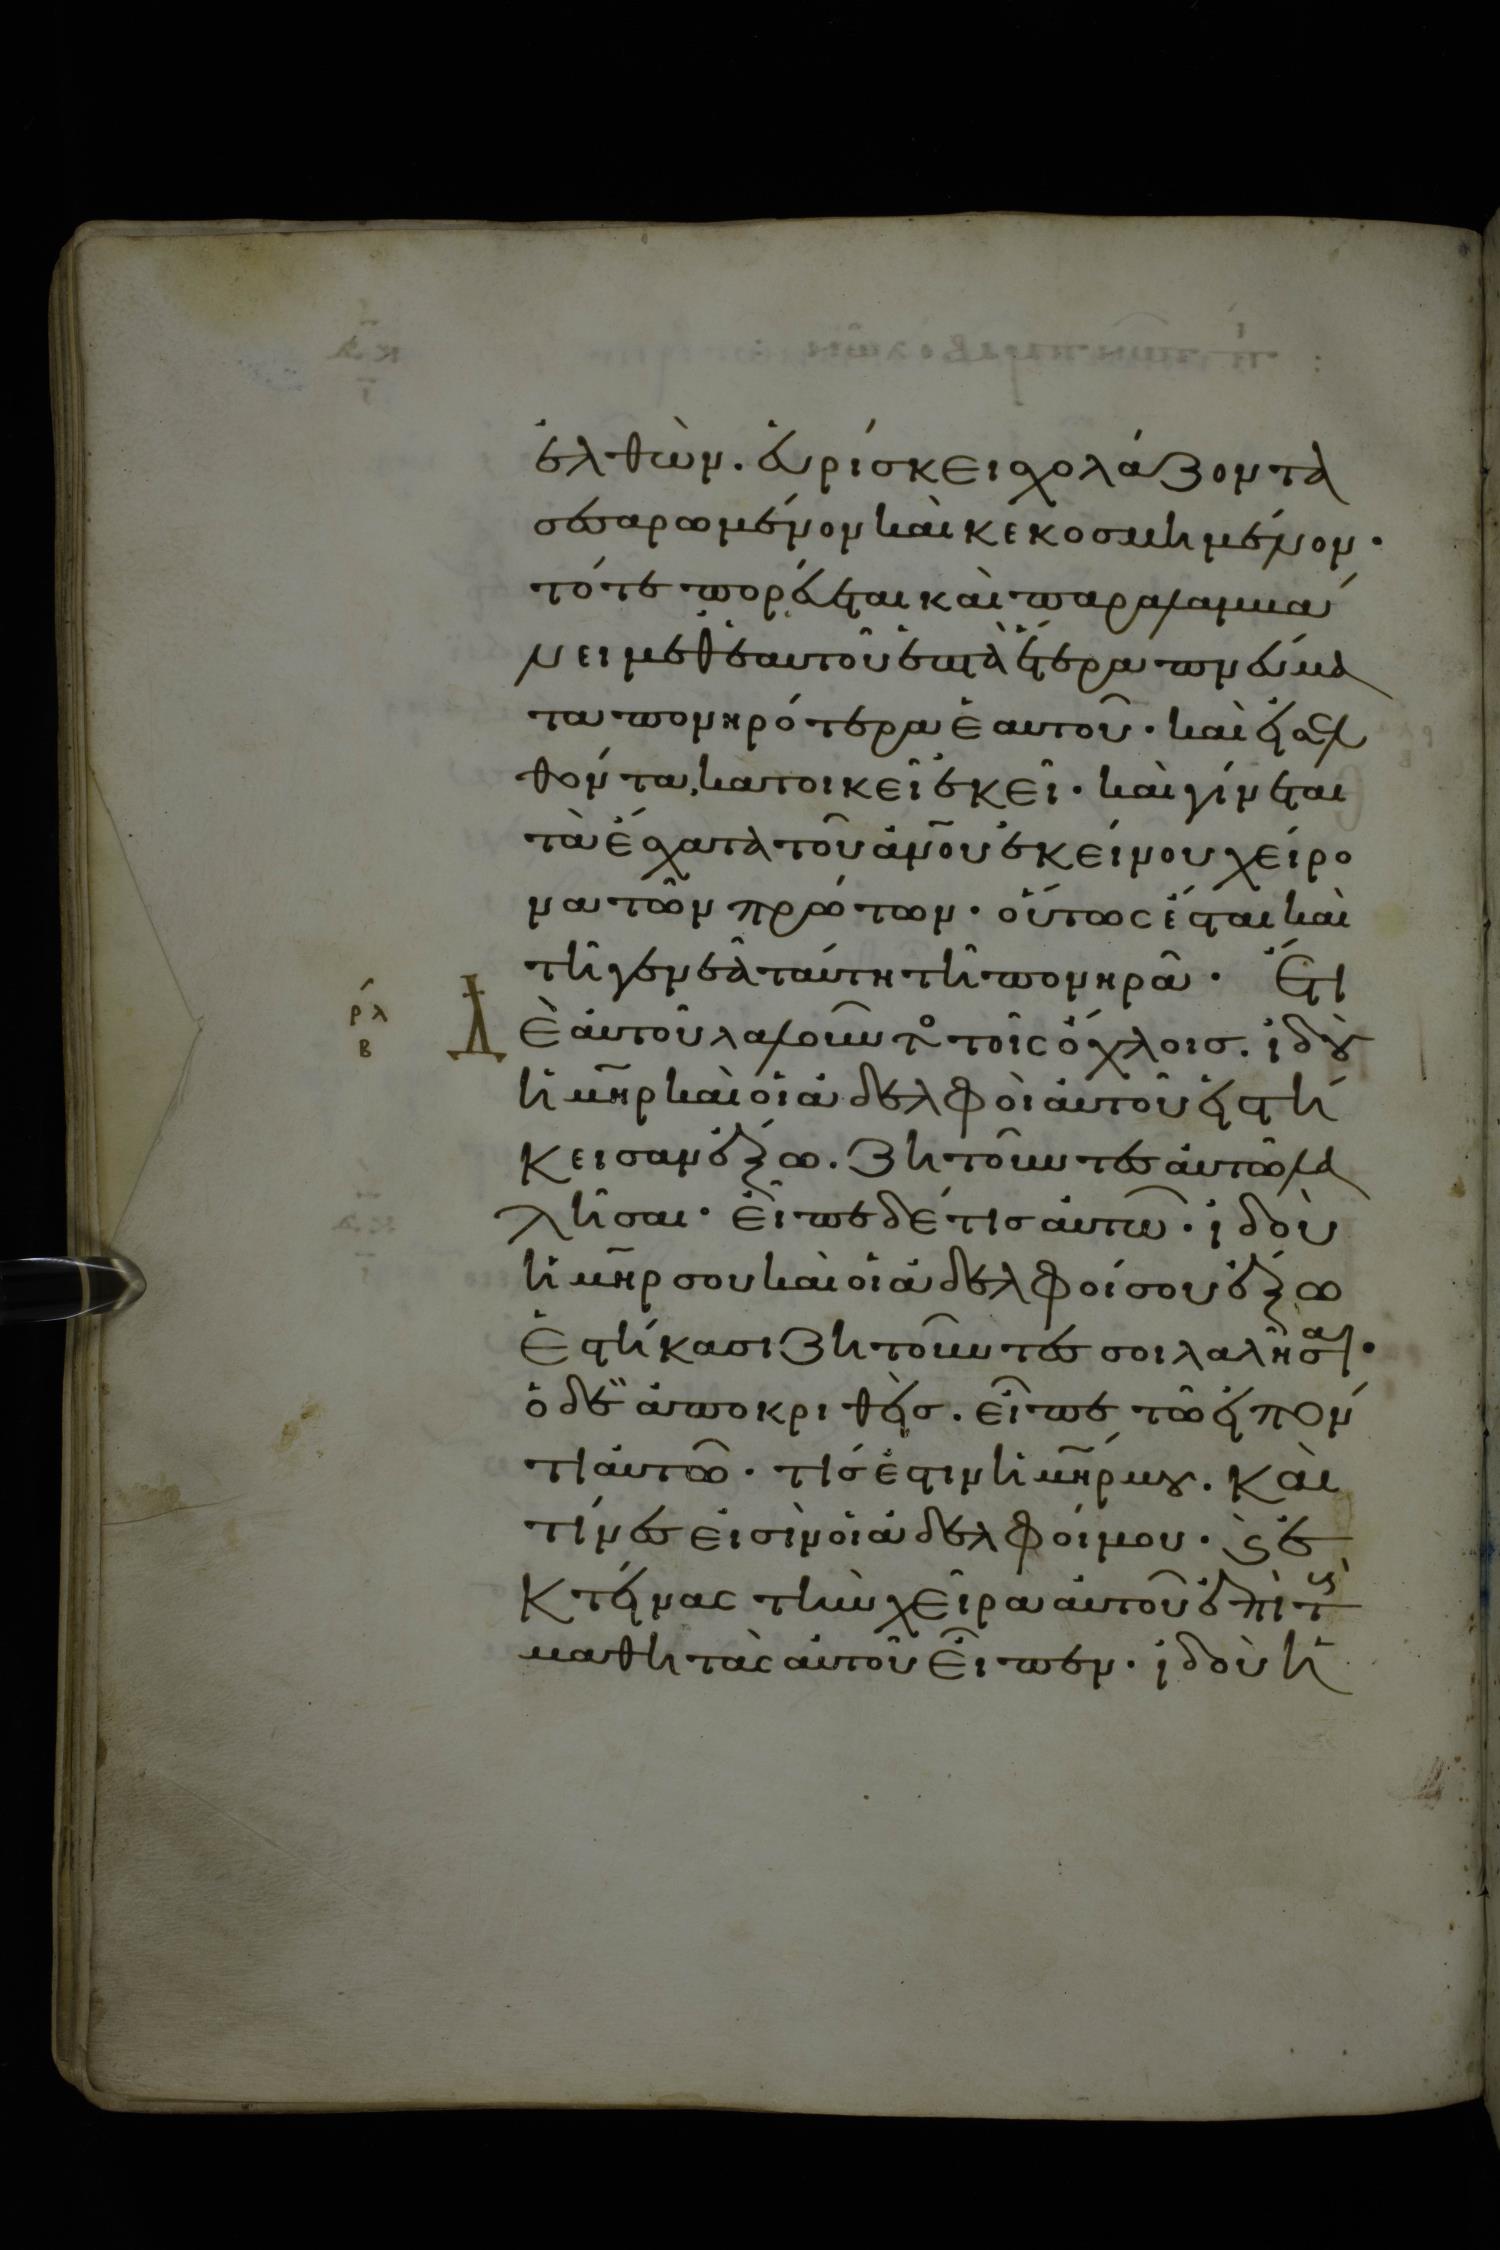 ἐλθὼν. εὑρίσκει σχολάζοντα
σεσαρωμένον καὶ κεκοσμημένον·
τότε πορεύεται καὶ παραλαμβά
νει μεθ ἑαυτοῦ ἑπτὰ ἕτερα πνεύμα
τα πονηρότερα ἑαυτοῦ· καὶ εἰσελ
θόντα κατοικεῖ ἐκεῖ· καὶ γίνεται
τὰ ἔσχατα τοῦ ἀνου ἐκείνου χείρο
να τῶν πρώτων· οὕτως ἔσται καὶ
τῆ γενεᾶ ταύτη τῆ πονηρᾶ· Ἔτι
ρλ
β
Δὲ αὐτοῦ λαλοῦντο τοῖς ὄχλοισ. ἰδοὺ
ἡ μηρ καὶ οἱ ἀδελφοὶ αὐτοῦ εἱστή
κεισαν ἔξω. ζητοῦντες αὐτῶ λα
λῆσαι· εἶπε δέ τισ αὐτῶ· ἰδοὺ
ἡ μηρ σου καὶ οἱ ἀδελφοί σου ἔξω
ἑστήκασι ζητοῦντες σοι λαλῆσαι·
ὁ δὲ ἀποκριθεὶσ. εἶπε τῶ εἰπόν
τι αὐτῶ· τίσ ἐστιν ἡ μηρ μου. Καὶ
τίνες εἰσὶν οἱ ἀδελφοί μου· κὶ ἐ
κτείνας τὴν χεῖρα αὐτοῦ ἐπὶ τοὺς
μαθητὰς αὐτοῦ εἶπεν· ἰδοὺ ἡ